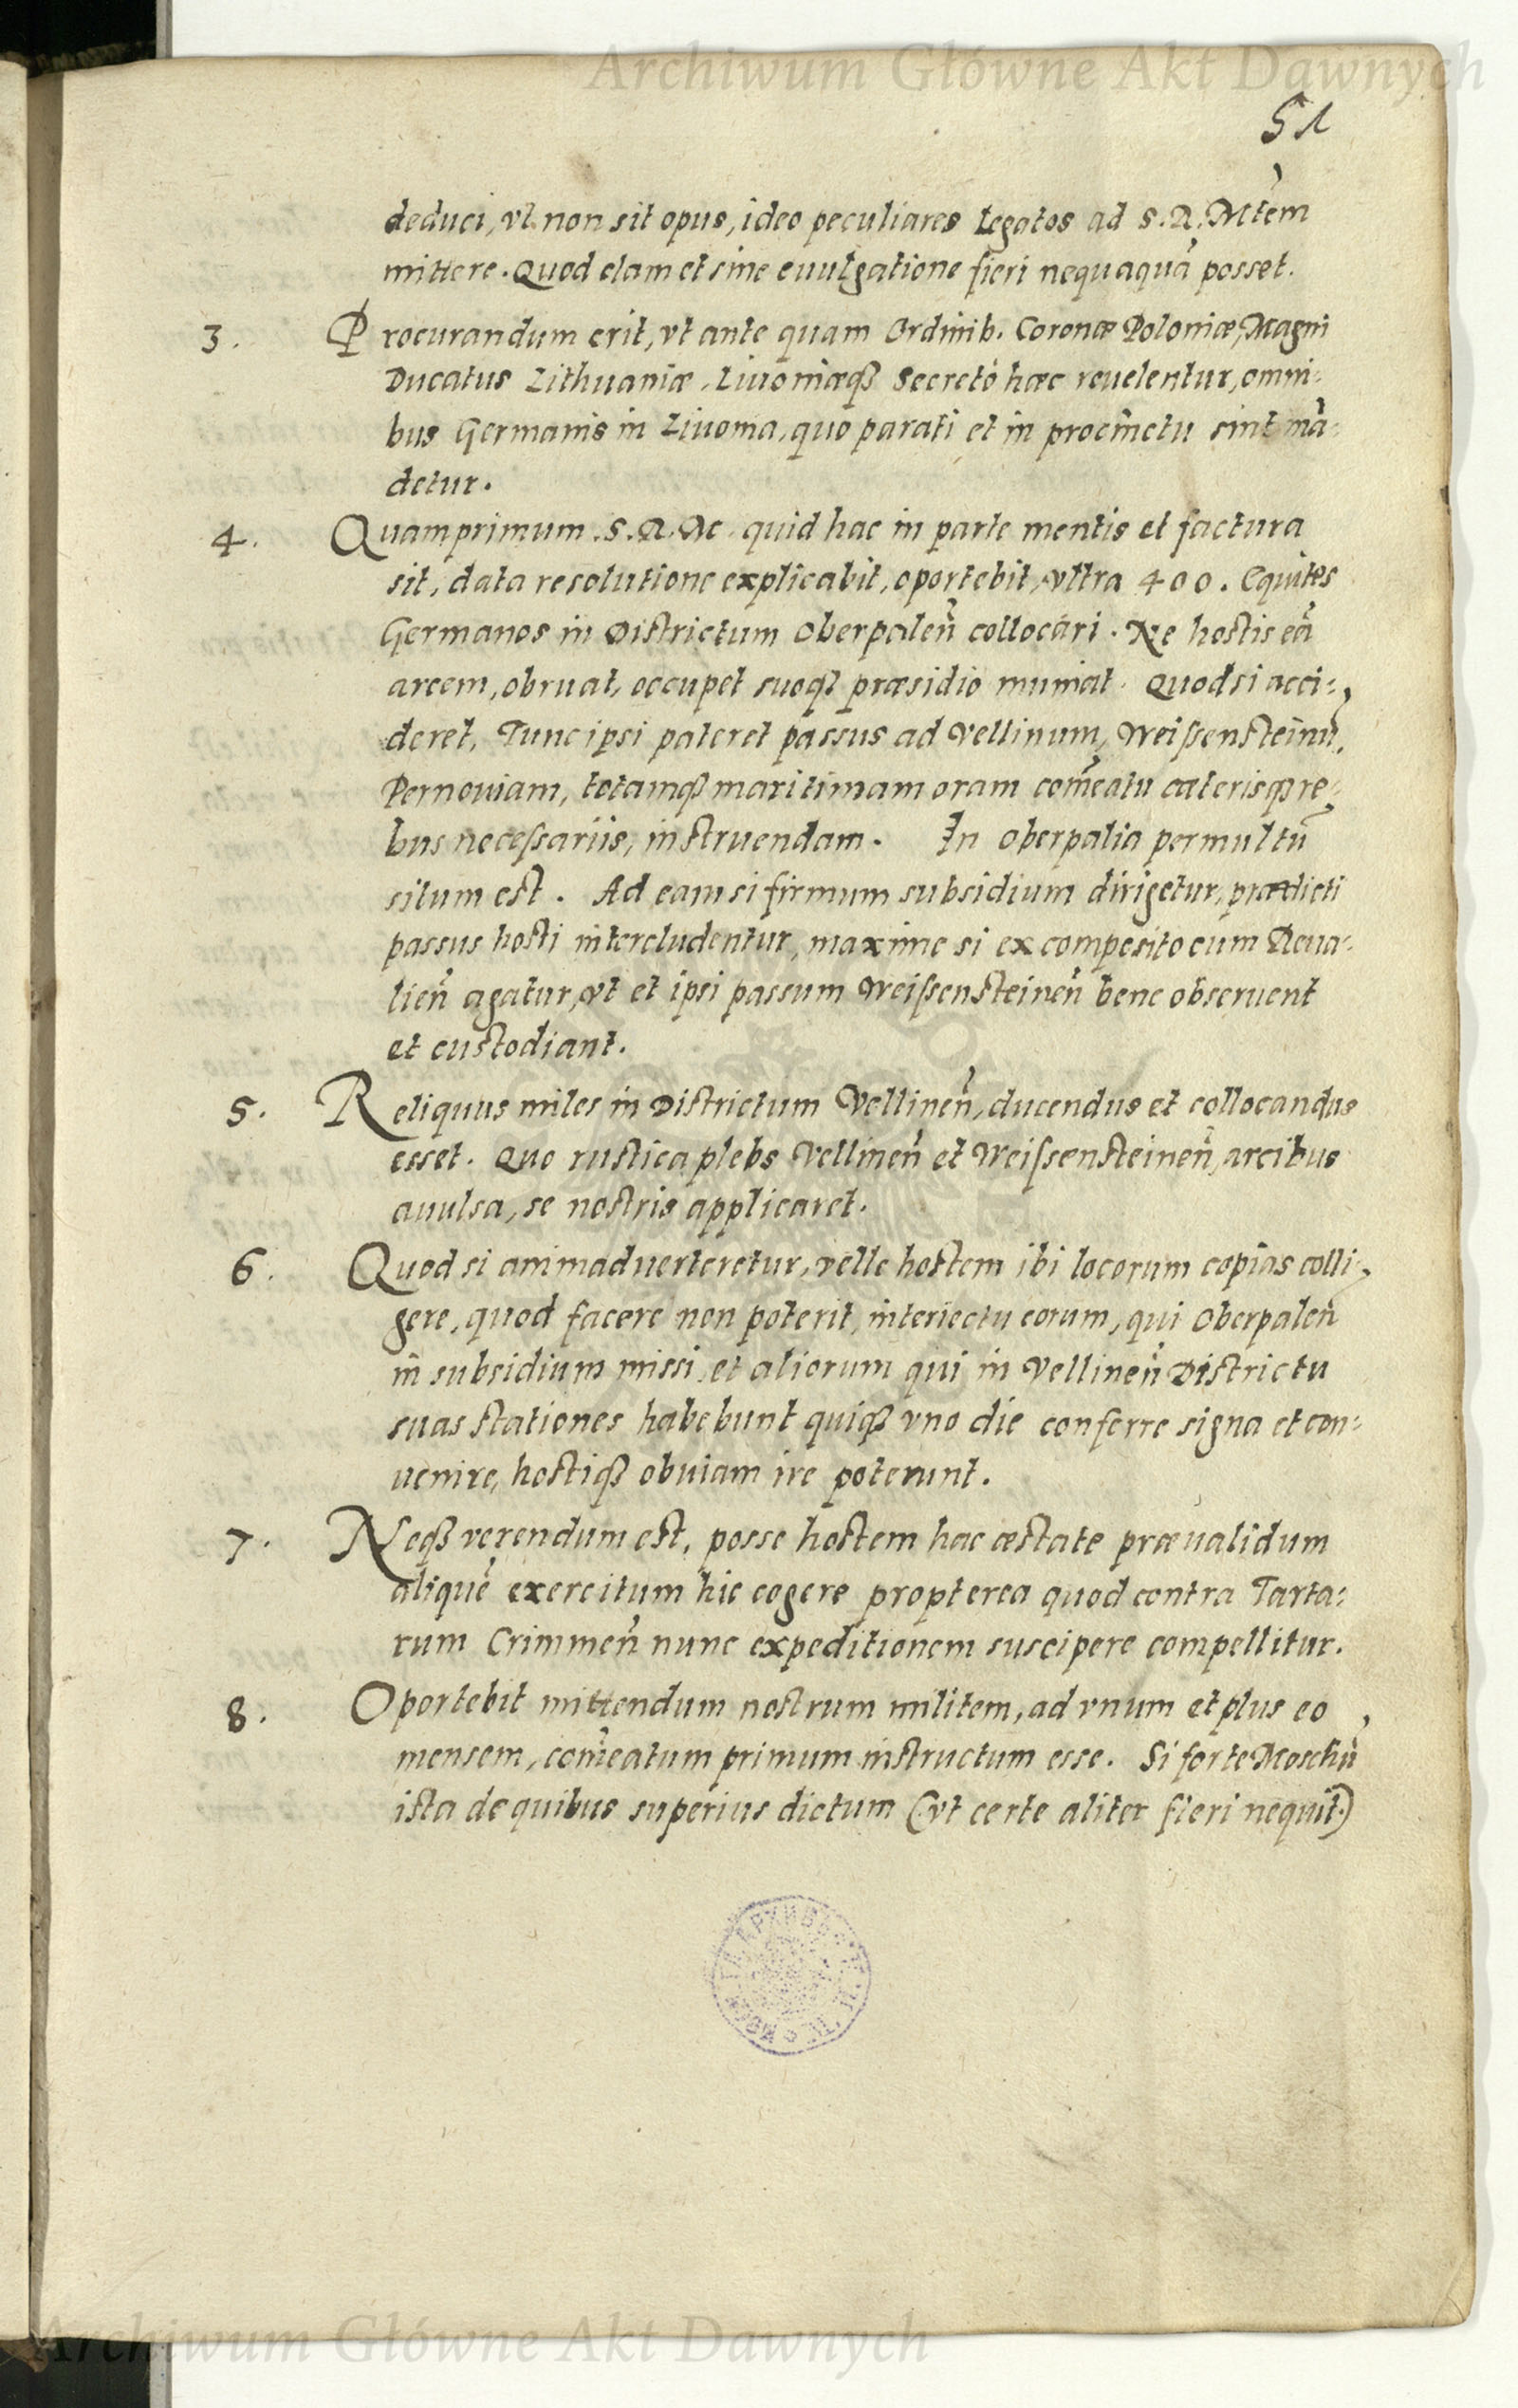 Archiwum Główne Akt Dawnych
51
deduci, vt non sit opus, ideo peculiares Legatos ad S. R. Mtem
mittere. Quod clam et sine euulgatione fieri nequaquā posset.
3. Procurandum erit, vt ante quam Ordinib. Coronæ Poloniæ, Magni
Ducatus Lithuaniæ, Liuoniæqꝫ secretò hæc reuelentur, omni=
bus Germanis in Liuonia, quo parati et in procinctu sint mā=
detur.
4. Quamprimum S. R. Mt. quid hac in parte mentis et factura
sit, data resolutione explicabit, oportebit, vltra 400. Equites
Germanos in Districtum Oberpaleñ collocari. Ne hostis eā
arcem, obruat, occupet suoqꝫ præsidio muniat. Quod si acci=
deret, Tunc ipsi pateret passus ad Vellinum, Weissensteinū,
Pernouiam, totamqꝫ maritimam oram com̃eatu cæterisqꝫ re=
bus necessariis, instruendam. In Oberpalia permultū
situm est. Ad eam si firmum subsidium dirigetur, prædicti
passus hosti intercludentur, maxime si ex composito cum Reua=
lieñ agatur, vt et ipsi passum Weissensteineñ bene obseruent
et custodiant.
5. Reliquus miles in Districtum Vellineñ, ducendus et collocandus
esset. Quo rustica plebs Vellineñ et Weissensteineñ, arcibus
auulsa, se nostris applicaret.
6. Quod si animaduerteretur, velle hostem ibi locorum copias colli=
gere, quod facere non poterit, interiectu eorum, qui Oberpaleñ
in subsidium missi, et aliorum qui in Vellineñ Districtu
suas stationes habebunt quiqꝫ vno die conferre signa et con=
uenire, hostiqꝫ obuiam ire poterunt.
7. Neqꝫ verendum est, posse hostem hac æstate præualidum
aliquē exercitum hic cogere propterea quod contra Tarta=
rum Crimmeñ nunc expeditionem suscipere compellitur.
8. Oportebit mittendum nostrum militem, ad vnum et plus eo
mensem, com̃eatum primum instructum esse. Si forte Moschū
ista de quibus superius dictum (vt certe aliter fieri nequit)
Archiwum Główne Akt Dawnych